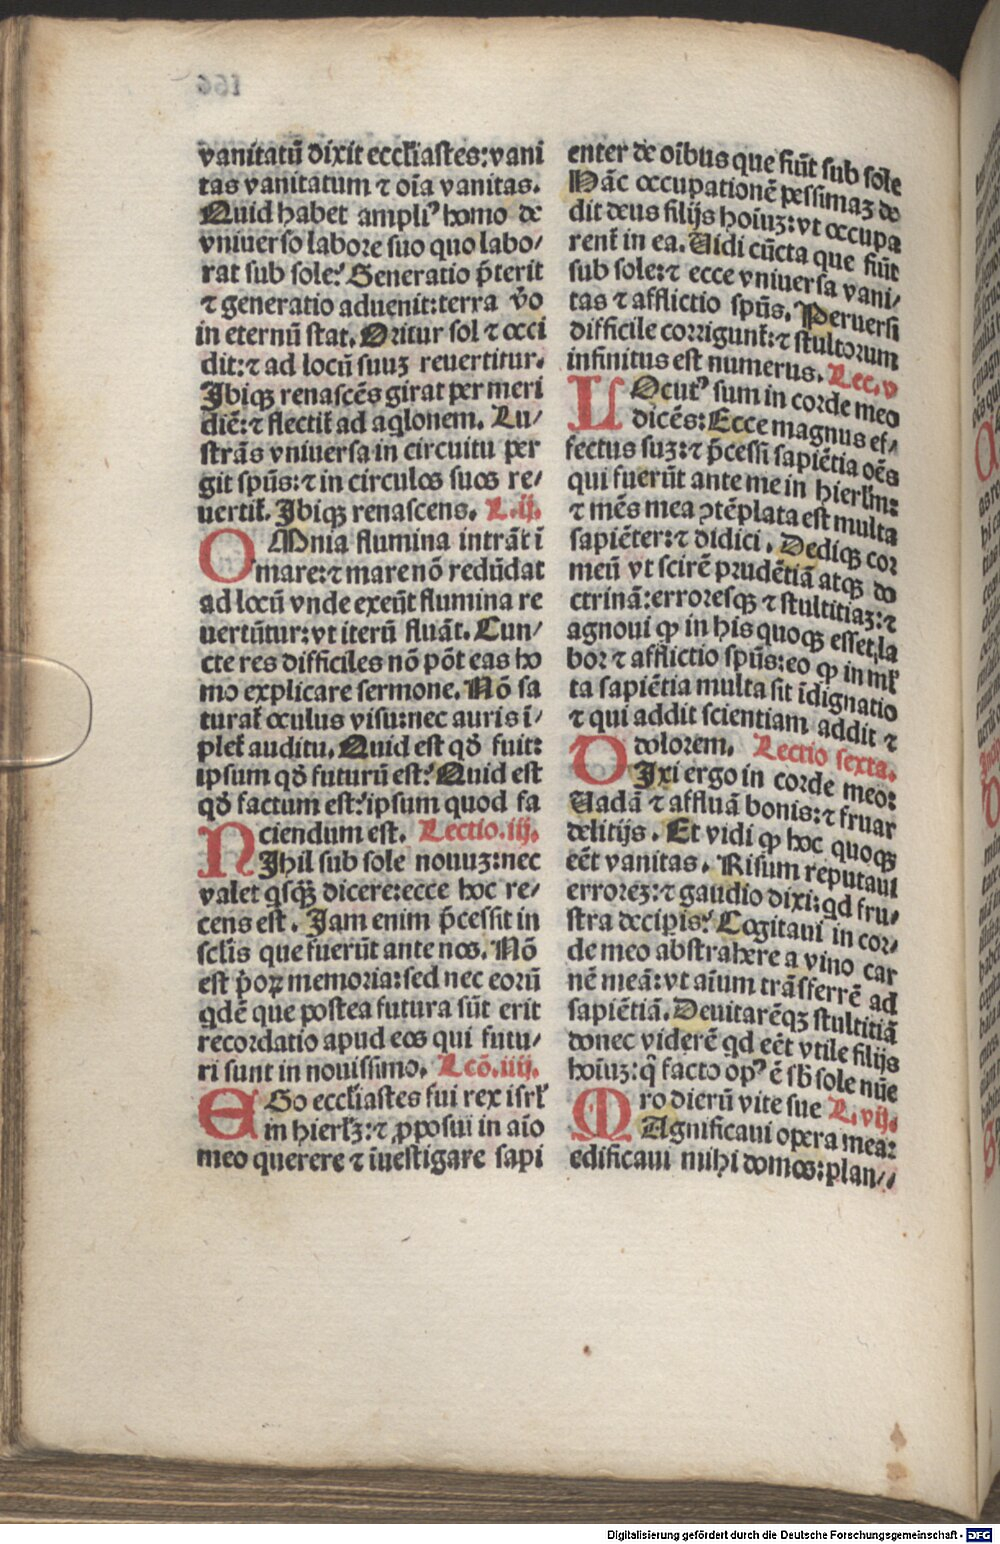 vanitatū dixit eccl̄iastes: vani
tas vanitatum ⁊ oīa vanitas.
Quid habet ampliꝰ homo de
vniuerso labore suo quo labo⸗
rat sub sole? Generatio p̄terit
⁊ generatio aduenit: terra v̊o
in eternū stat. Oritur sol ⁊ occi
dit: ⁊ ad locū suuꝫ reuertitur.
Ibiqꝫ renascēs girat per meri
diē: ⁊ flectit̄ ad aq̇lonem. Lu⸗
strās vniuersa in circuitu per
git spūs: ⁊ in circulos suos re⸗
uertit̄. Ibiqꝫ renascens. L. ij.
OMnia flumina intrāt ī
mare: ⁊ mare nō redūdat
ad locū vnde exeūt flumina re
uertūtur: vt iterū fluāt. Cun⸗
cte res difficiles nō pōt eas ho
mo explicare sermone. Nō sa
turat̄ oculus visu: nec auris ī⸗
plet̄ auditu. Quid est qd̓ fuit:
ipsum qd̓ futurū est? Quid est
qd̓ factum est? ipsum quod fa
ciendum est. Lectio. iij.
NIhil sub sole nouuꝫ: nec
valet q̇sqꝫ̄ dicere: ecce hoc re⸗
cens est. Iam enim p̄cessit in
sclīs que fuerūt ante nos. Nō
est p̓oꝝ memoria: sed nec eorū
q̇dē que postea futura sūt erit
recordatio apud eos qui futu⸗
ri sunt in nouissimo. Lcō. iiij.
EGo eccl̄iastes fui rex isrl̄
in hierlꝫ̄: ⁊ ꝓposui in aīo
meo querere ⁊ īuestigare sapi
enter de oībus que fiūt sub sole
Hāc occupationē pessimaꝫ de
dit deus filijs hoīuꝫ: vt occupa
rent̄ in ea. Uidi cūcta que fiūt
sub sole: ⁊ ecce vniuersa vani⸗
tas ⁊ afflictio spūs. Peruersi
difficile corrigunt̄: ⁊ stultorum
infinitus est numerus. Lec. v
LOcutꝰ sum in corde meo
dicēs: Ecce magnus ef⸗
fectus suꝫ: ⁊ p̄cessi sapiētia oēs
qui fuerūt ante me in hierlm̄:
⁊ mēs mea ↄtēplata est multa
sapiēter: ⁊ didici. Dediqꝫ cor
meū vt scirē prudētiā atqꝫ do
ctrinā: erroresqꝫ ⁊ stultitiaꝫ: ⁊
agnoui ꝙ in his quoqꝫ esset, la
bor ⁊ afflictio spūs: eo ꝙ in ml̄
ta sapiētia multa sit īdignatio
⁊ qui addit scientiam addit ⁊
dolorem. Lectio sexta.
DIxi ergo in corde meo:
Uadā ⁊ affluā bonis: ⁊ fruar
delitijs. Et vidi ꝙ hoc quoqꝫ
eēt vanitas. Risum reputaui
errorez: ⁊ gaudio dixi: qd fru⸗
stra decip̱is? Cogitaui in cor⸗
de meo abstrahere a vino car
nē meā: vt aīum trāsferrē ad
sapiētiā. Deuitarēqꝫ stultitiā
donec viderē qd eēt vtile filijs
hoīuꝫ: q̄ facto opꝰ ē sb̄ sole nūe
ro dierū vite sue L. vij.
MAgnificaui opera mea:
edificaui mihi domos: plan⸗